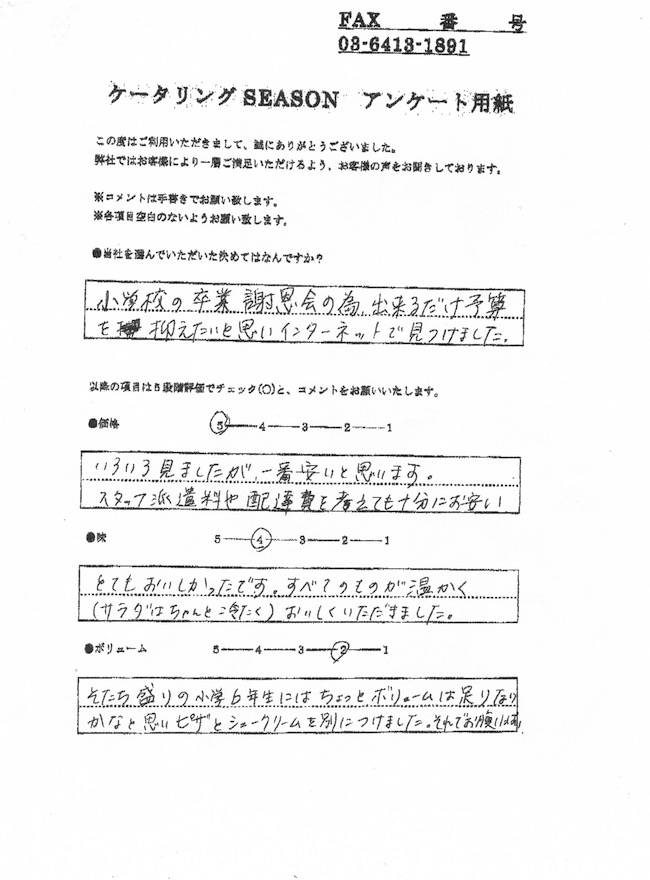 FAX 番号
03-6413-1891
ケータリングSEASON アンケート用紙
この度はご利用いただきまして、誠にありがとうございました。
弊社ではお客様により一層ご満足いただけるよう、お客様の声をお聞きしております。
※コメントは手書きでお願い致します。
※各項目空白のないようお願い致します。
●当社を選んでいただいた決めてはなんですか?
小学校の卒業謝恩会の為、出来るだけ予算
を 抑えたいと思いインターネットで見つけました。
以降の項目は5段階評価でチェック(○)と、コメントをお願いいたします。
●価格 5 4 3 2 1
いろいろ見ましたが、一番安いと思います。
スタッフ派遣料や配達費を考えても十分にお安い
●味 5 4 3 2 1
とてもおいしかったです。すべてのものが温かく
(サラダはちゃんと冷たく)おいしくいただきました。
●ボリューム 5 4 3 2 1
そだち盛りの小学6年生にはちょっとボリュームは足りない
かなと思いピザとシュークリームを別につけました。それでお腹いっぱい